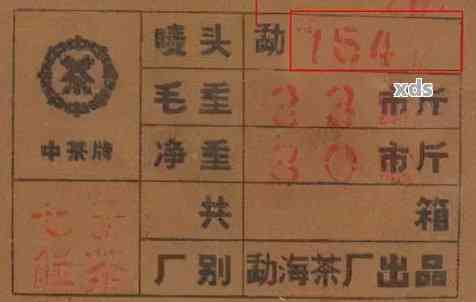 唛头 勐 7542
中茶牌
毛重 33 市斤
净重 30 市斤
七子
饼茶
共 箱
厂别 勐海茶厂出品
xds